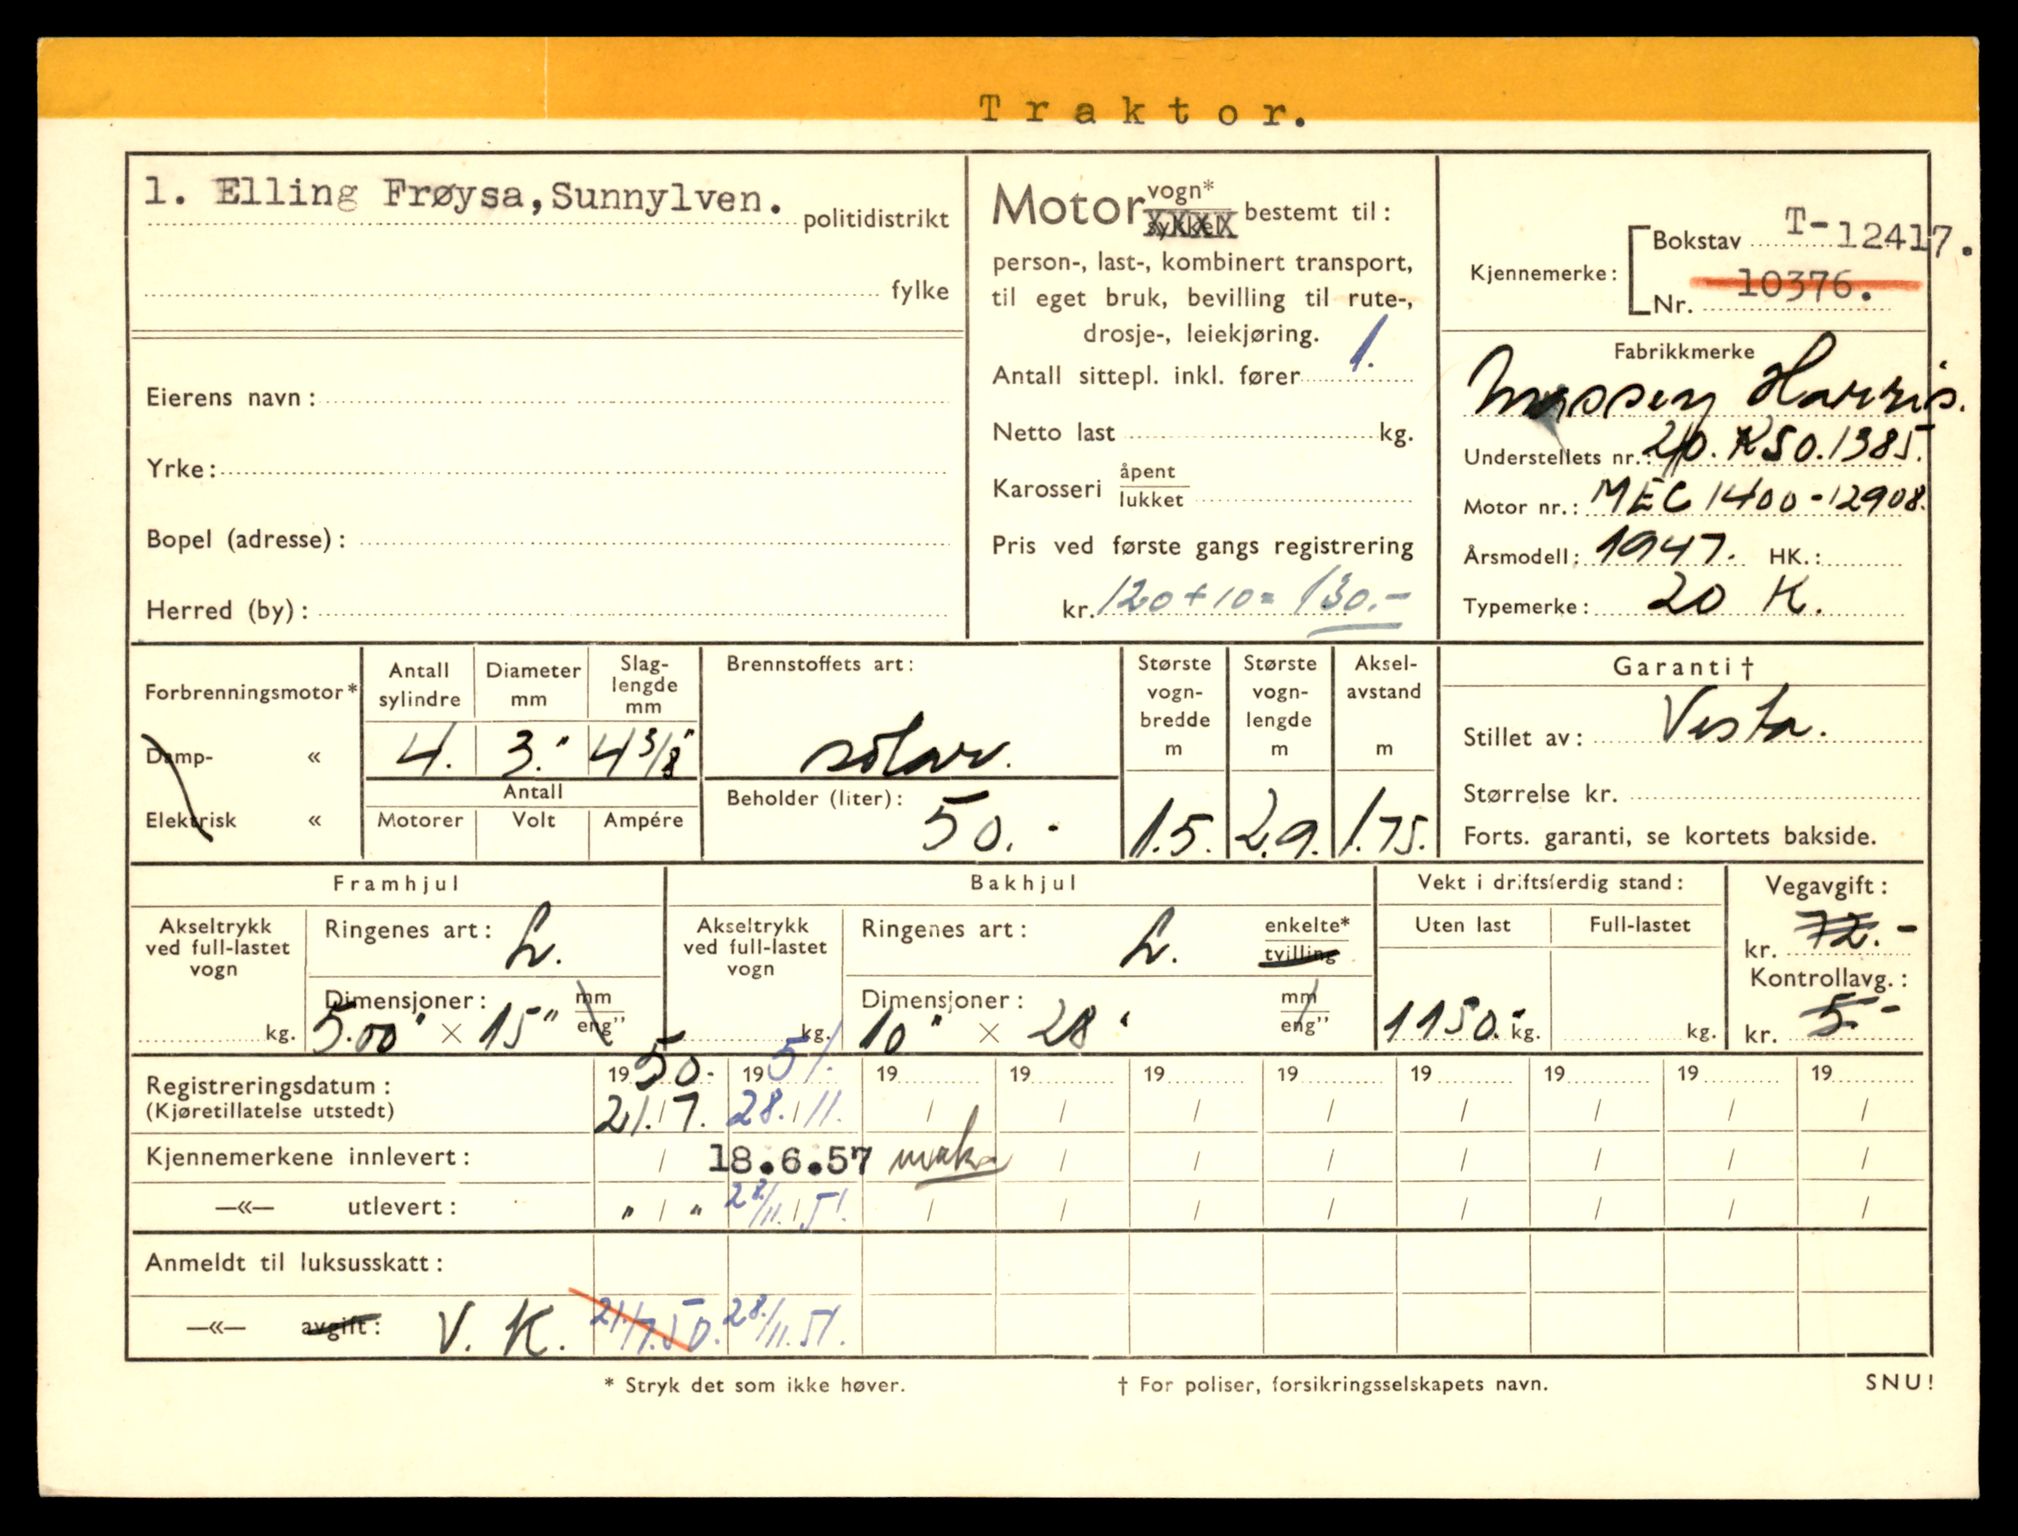 Traktor.
1. Elling Frøysa, Sunnylven. politidistrikt
fylke
Eierens navn:
Yrke:
Bopel (adresse):
Herred (by):
Motor vogn*
sykkel bestemt til:
person-, last-, kombinert transport,
til eget bruk, bevilling til rute-,
drosje-, leiekjøring.
Antall sittepl. inkl. fører 1.
Netto last kg.
Karosseri åpent
lukket
Pris ved første gangs registrering
kr. 120 + 10 = 130.-
Kjennemerke: Bokstav T-12417.
Nr. 10376.
Fabrikkmerke
Massey Harris.
Understellets nr.: 20. KSO.1385.
Motor nr.: MEC 1400-12908.
Årsmodell: 1947. HK.:
Typemerke: 20 K.
Forbrenningsmotor*
Damp- «
Elektrisk «
Antall sylindre
4.
Diameter mm
3."
Slag-lengde mm
4 3/8"
Antall
Motorer Volt Ampére
Brennstoffets art:
solar.
Beholder (liter):
50.-
Største vogn-bredde m
1.5.
Største vogn-lengde m
2.9.
Aksel-avstand m
1.75.
Garanti †
Stillet av: Vesta.
Størrelse kr.
Forts. garanti, se kortets bakside.
Framhjul
Akseltrykk ved full-lastet vogn
kg.
Ringenes art: L.
Dimensjoner: mm
eng"
5.00" × 15"
Bakhjul
Akseltrykk ved full-lastet vogn
kg.
Ringenes art: L. enkelte*
tvilling
Dimensjoner: mm
eng"
10" × 28"
Vekt i driftsferdig stand:
Uten last Full-lastet
1150.- kg. kg.
Vegavgift:
kr. 72.-
Kontrollavg.:
kr. 5.-
Registreringsdatum: 1950. 1951. 19 19 19 19 19 19 19 19
(Kjøretillatelse utstedt) 21./7. 28./11. / / / / / / / /
Kjennemerkene innlevert: / 18.6.57 / / / / / / /
—«— utlevert: " / " 28/11./51. / / / / / / / /
Anmeldt til luksusskatt:
—«— avgift: V. K. 21/7.50. 28/11.51.
* Stryk det som ikke høver.
† For poliser, forsikringsselskapets navn.
SNU!